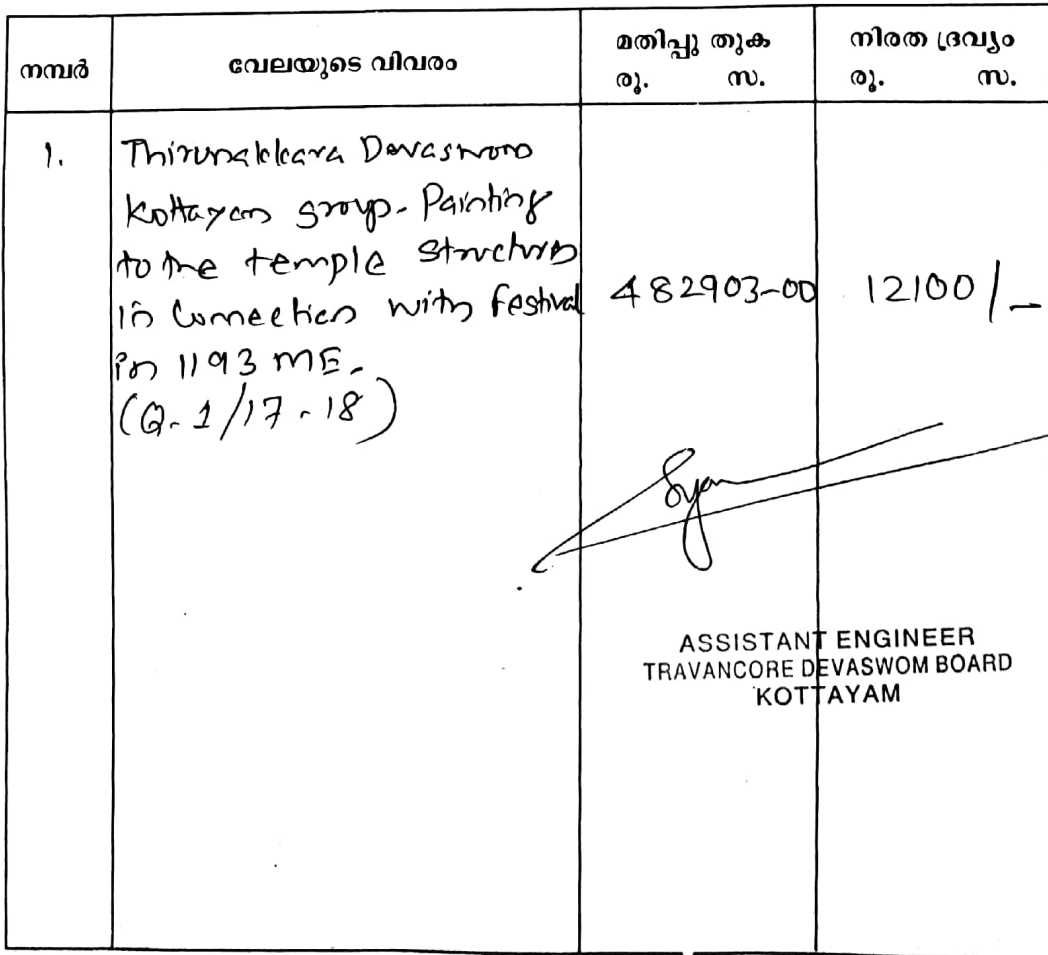 നമ്പർ വേലയുടെ വിവരം മതിപ്പു തുക നിരത ദ്രവ്യം
രൂ. സ. രൂ. സ.
1. Thirunakkara Devaswom
Kottayam group. Painting
to the temple structures
in connection with festival 482903-00 12100/-
in 1193 ME.
(Q. 1/17-18)
ASSISTANT ENGINEER
TRAVANCORE DEVASWOM BOARD
KOTTAYAM